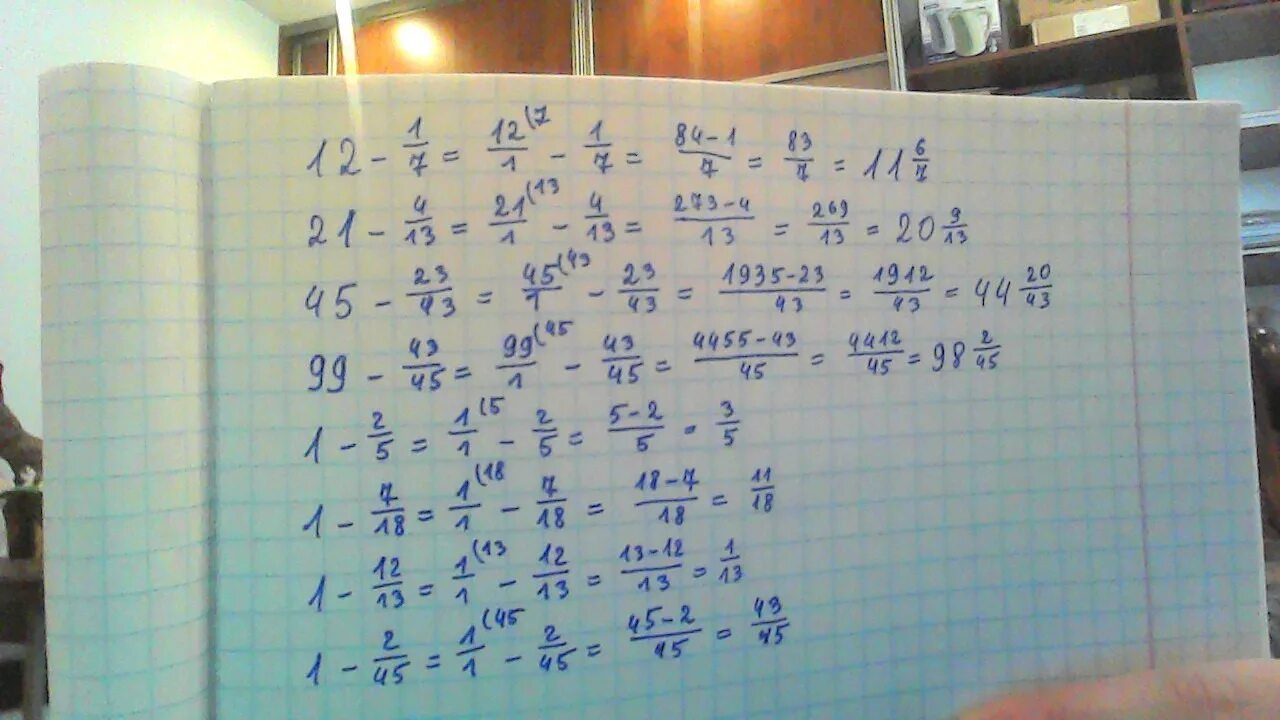 12 - 1/7 = 12/1 (7 - 1/7 = 84-1/7 = 83/7 = 11 6/7
21 - 4/13 = 21/1 (13 - 4/13 = 273-4/13 = 269/13 = 20 9/13
45 - 23/43 = 45/1 (43 - 23/43 = 1935-23/43 = 1912/43 = 44 20/43
99 - 43/45 = 99/1 (45 - 43/45 = 4455-43/45 = 4412/45 = 98 2/45
1 - 2/5 = 1/1 (5 - 2/5 = 5-2/5 = 3/5
1 - 7/18 = 1/1 (18 - 7/18 = 18-7/18 = 11/18
1 - 12/13 = 1/1 (13 - 12/13 = 13-12/13 = 1/13
1 - 2/45 = 1/1 (45 - 2/45 = 45-2/45 = 43/45